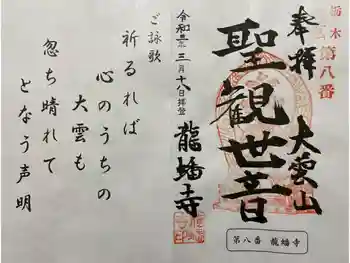 奉拝
大雲山
栃木
第八番
聖観世音
龍蟠寺
令和三年三月十八日拝登
第八番 龍蟠寺
ご詠歌
祈るれば
心のうちの
大雲も
忽ち晴れて
となう声明